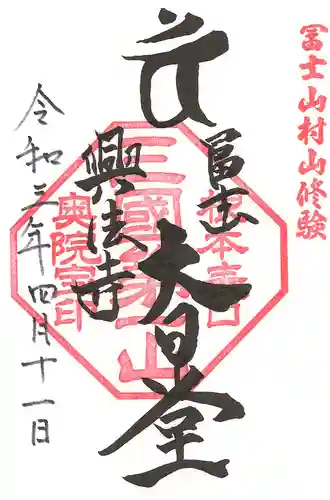 冨士山村山修験
冨士
大日堂
興法寺
三國第一山
根本宮
奥院室印
令和三年四月十一日